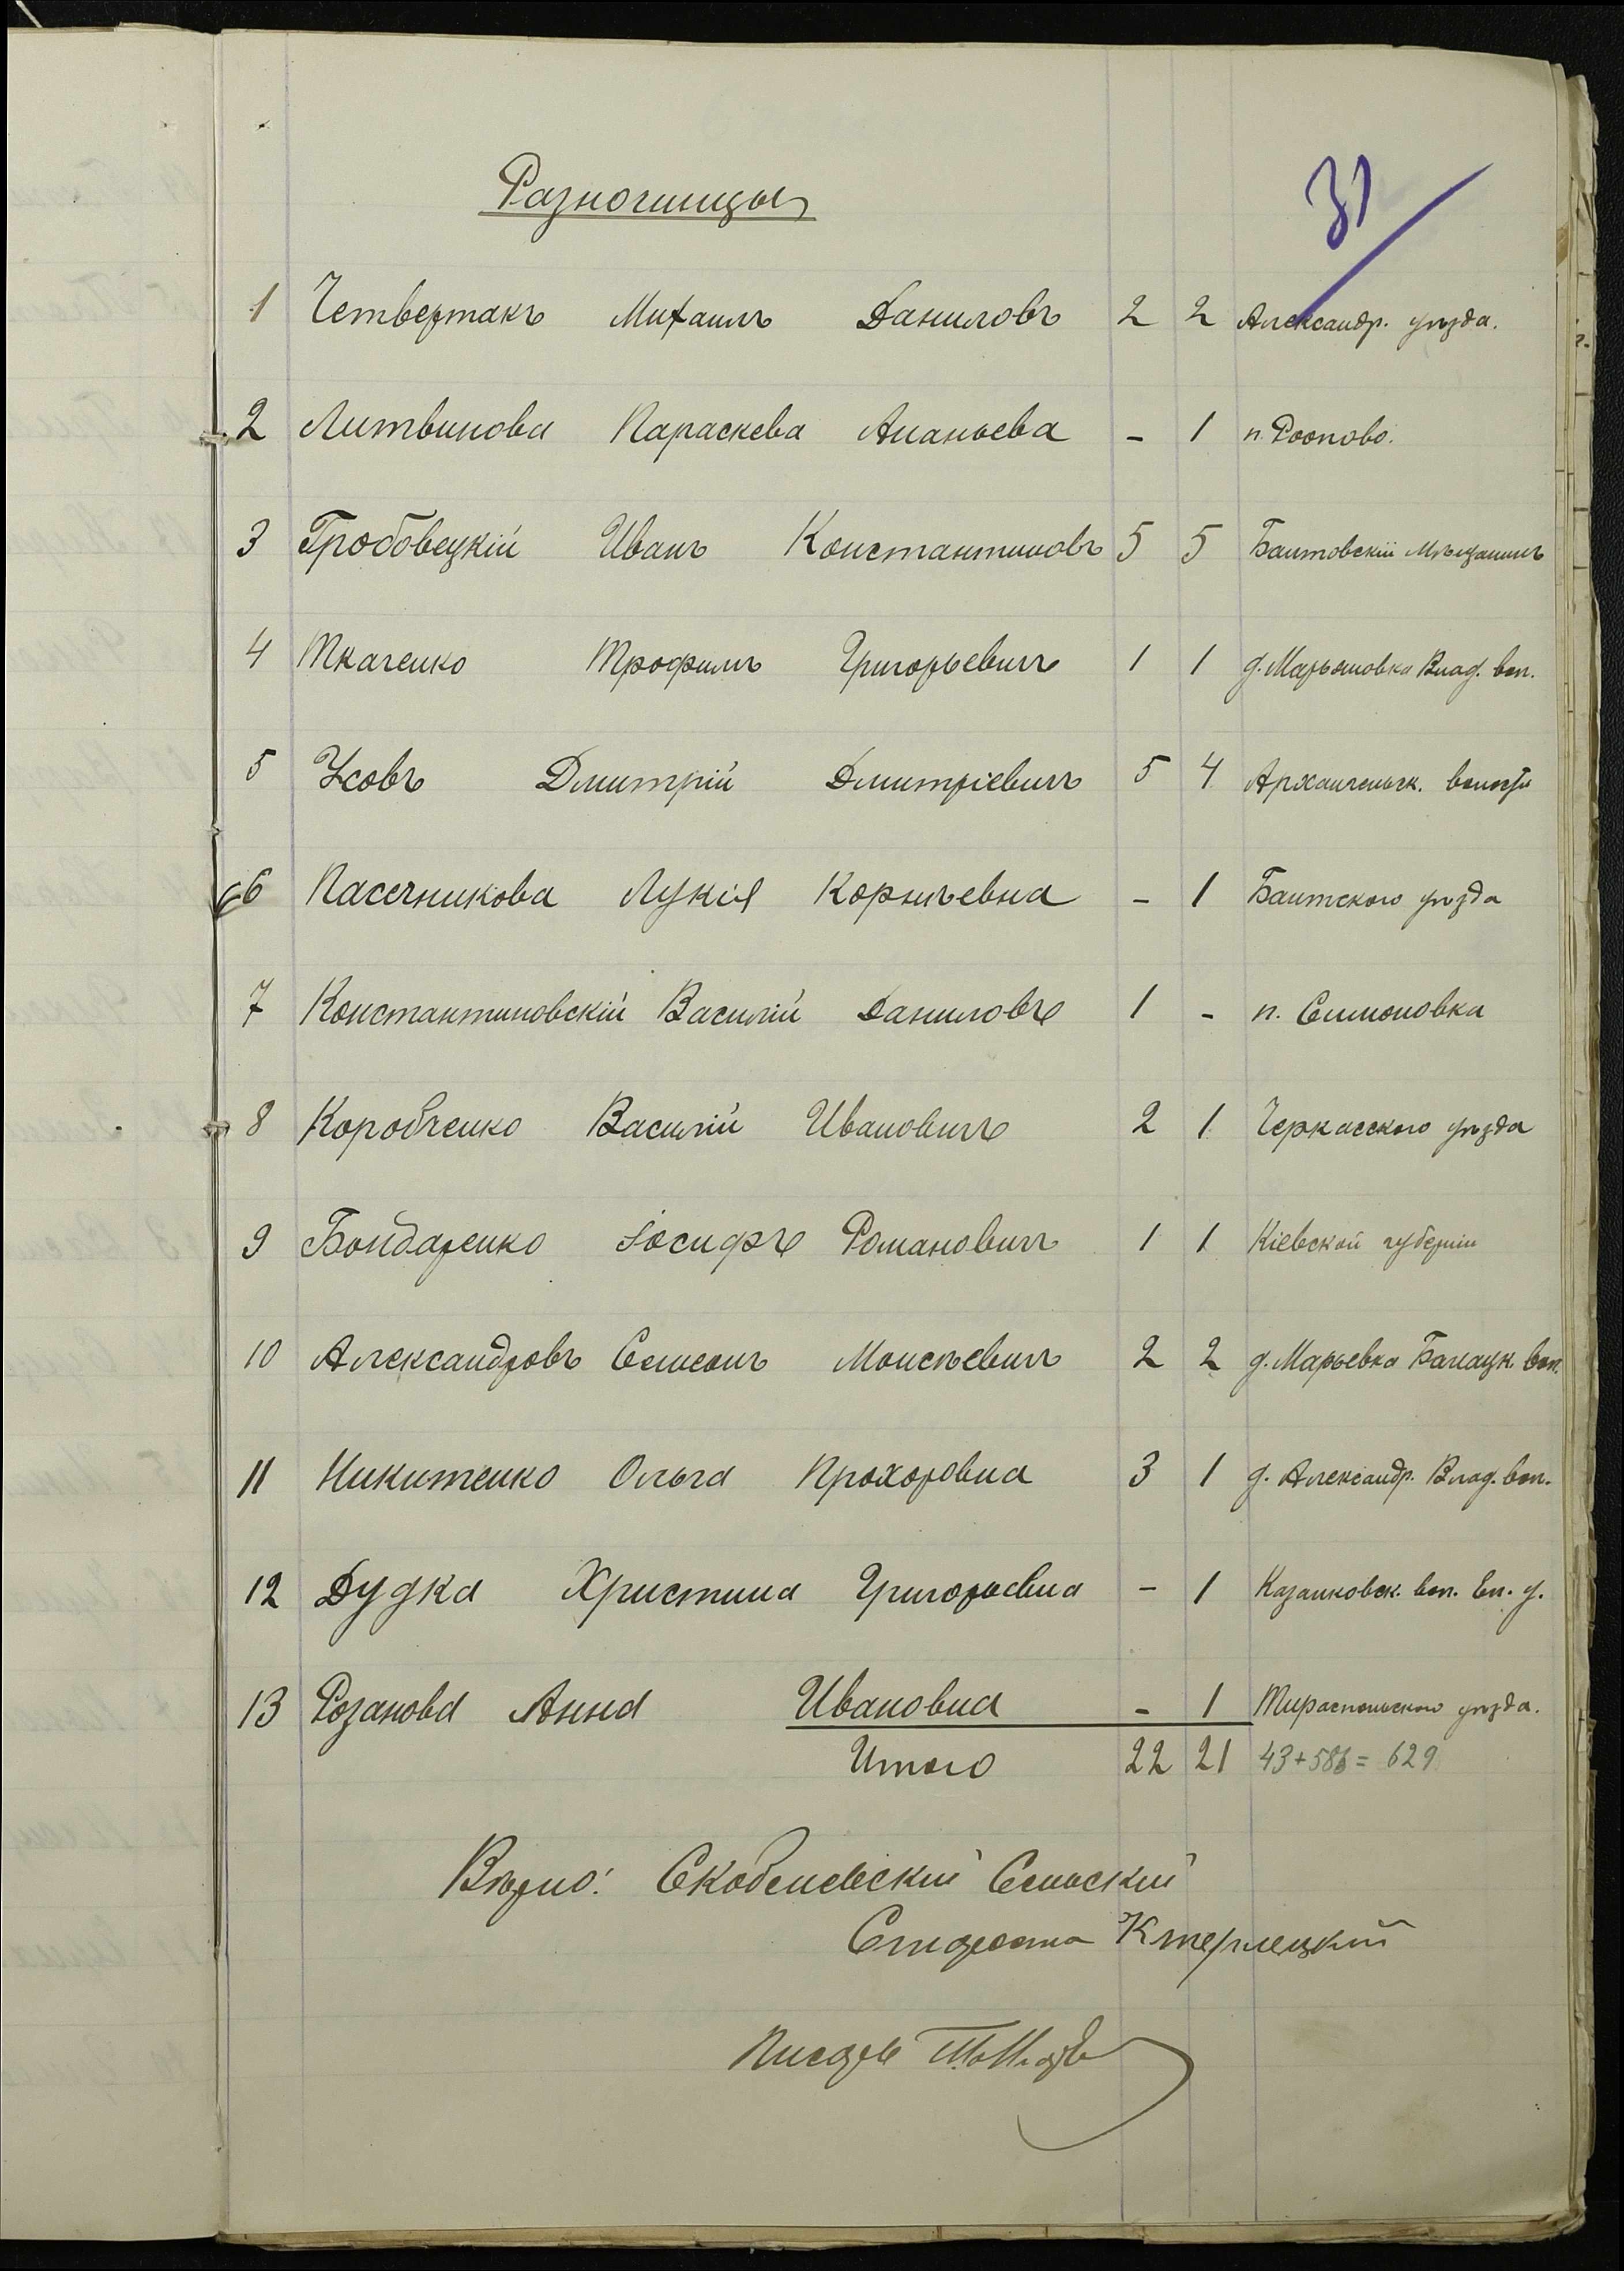 31
Разночинцы
1 Четвертакъ Михаилъ Даниловъ 2 2 Александр. уѣзда.
2 Литвинова Параскева Ананьева - 1 п. Роопово.
3 Гробовецкій Иванъ Константиновъ 5 5 Балтовскій Мѣщанинъ
4 Ткаченко Трофимъ Григорьевичъ 1 1 д. Марьяновка Влад. вол.
5 Усовъ Дмитрій Дмитріевичъ 5 4 Архангельск. волости
6 Пасечникова Лукія Корнѣевна - 1 Балтского уѣзда
7 Константиновскій Василій Даниловъ 1 - п. Симоновка
8 Коробченко Василій Ивановичъ 2 1 Черкасского уѣзда
9 Бондаренко Іосифъ Романовичъ 1 1 Кіевской губерніи
10 Александровъ Семеонъ Моисѣевичъ 2 2 д. Марьевка Балацк. вол.
11 Никитенко Ольга Прохоровна 3 1 д. Александр. Влад. вол.
12 Дудка Христина Григорьевна - 1 Казанковск. вол. Ел. у.
13 Розанова Анна Ивановна - 1 Тираспольского уѣзда.
Итого 22 21 43+586= 629
Вѣрно: Скобелевскій Сельскій
Староста К Терлецкій
Писарь